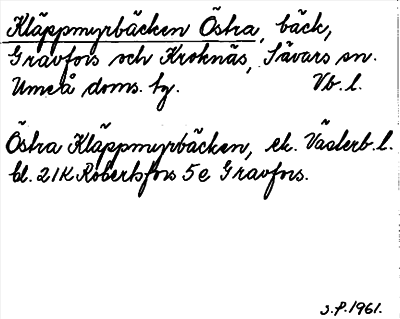 Kläppmyrbäcken Östra, bäck,
Gravfors och Kroknäs, Sävars sn.
Umeå doms. tg. Vb. l.
Östra Kläppmyrbäcken, ek. Västerb. l.
bl. 21K Robertsfors 5e Gravfors.
J.P. 1961.